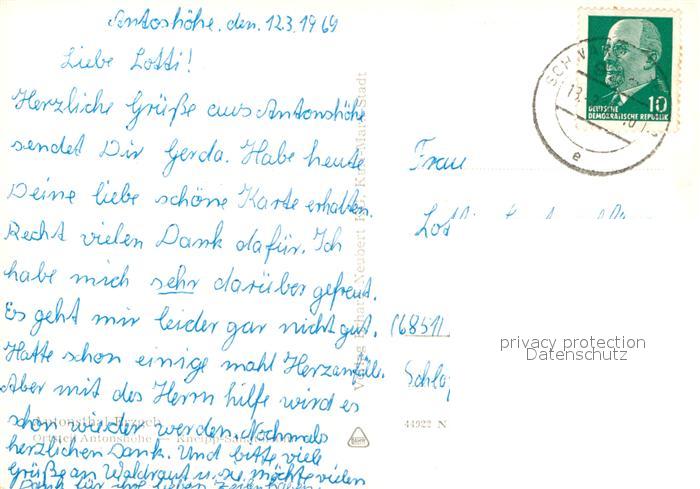 Antonshöhe, den 12.3.1969
Liebe Lotti!
Herzliche Grüße aus Antonshöhe
sendet Dir Gerda. Habe heute
Deine liebe schöne Karte erhalten.
Recht vielen Dank dafür. Ich
habe mich sehr darüber gefreut.
Es geht mir leider gar nicht gut.
Hatte schon einige mahl Herzanfälle.
Aber mit des Herrn hilfe wird es
schon wieder werden. Nochmals
herzlichen Dank. Und bitte viele
Grüße an Waldraut u. sie möchte vielen
Dank für ihre lieben
Antonsthal Erzgeb.
Ortsteil Antonshöhe — Kneipp-
Verlag Erhard Neubert KG, Karl-Marx-Stadt
44922 N
DEUTSCHE
DEMOKRATISCHE REPUBLIK
10
SCHWA
13.
e
Frau
(6851)
privacy protection
Datenschutz